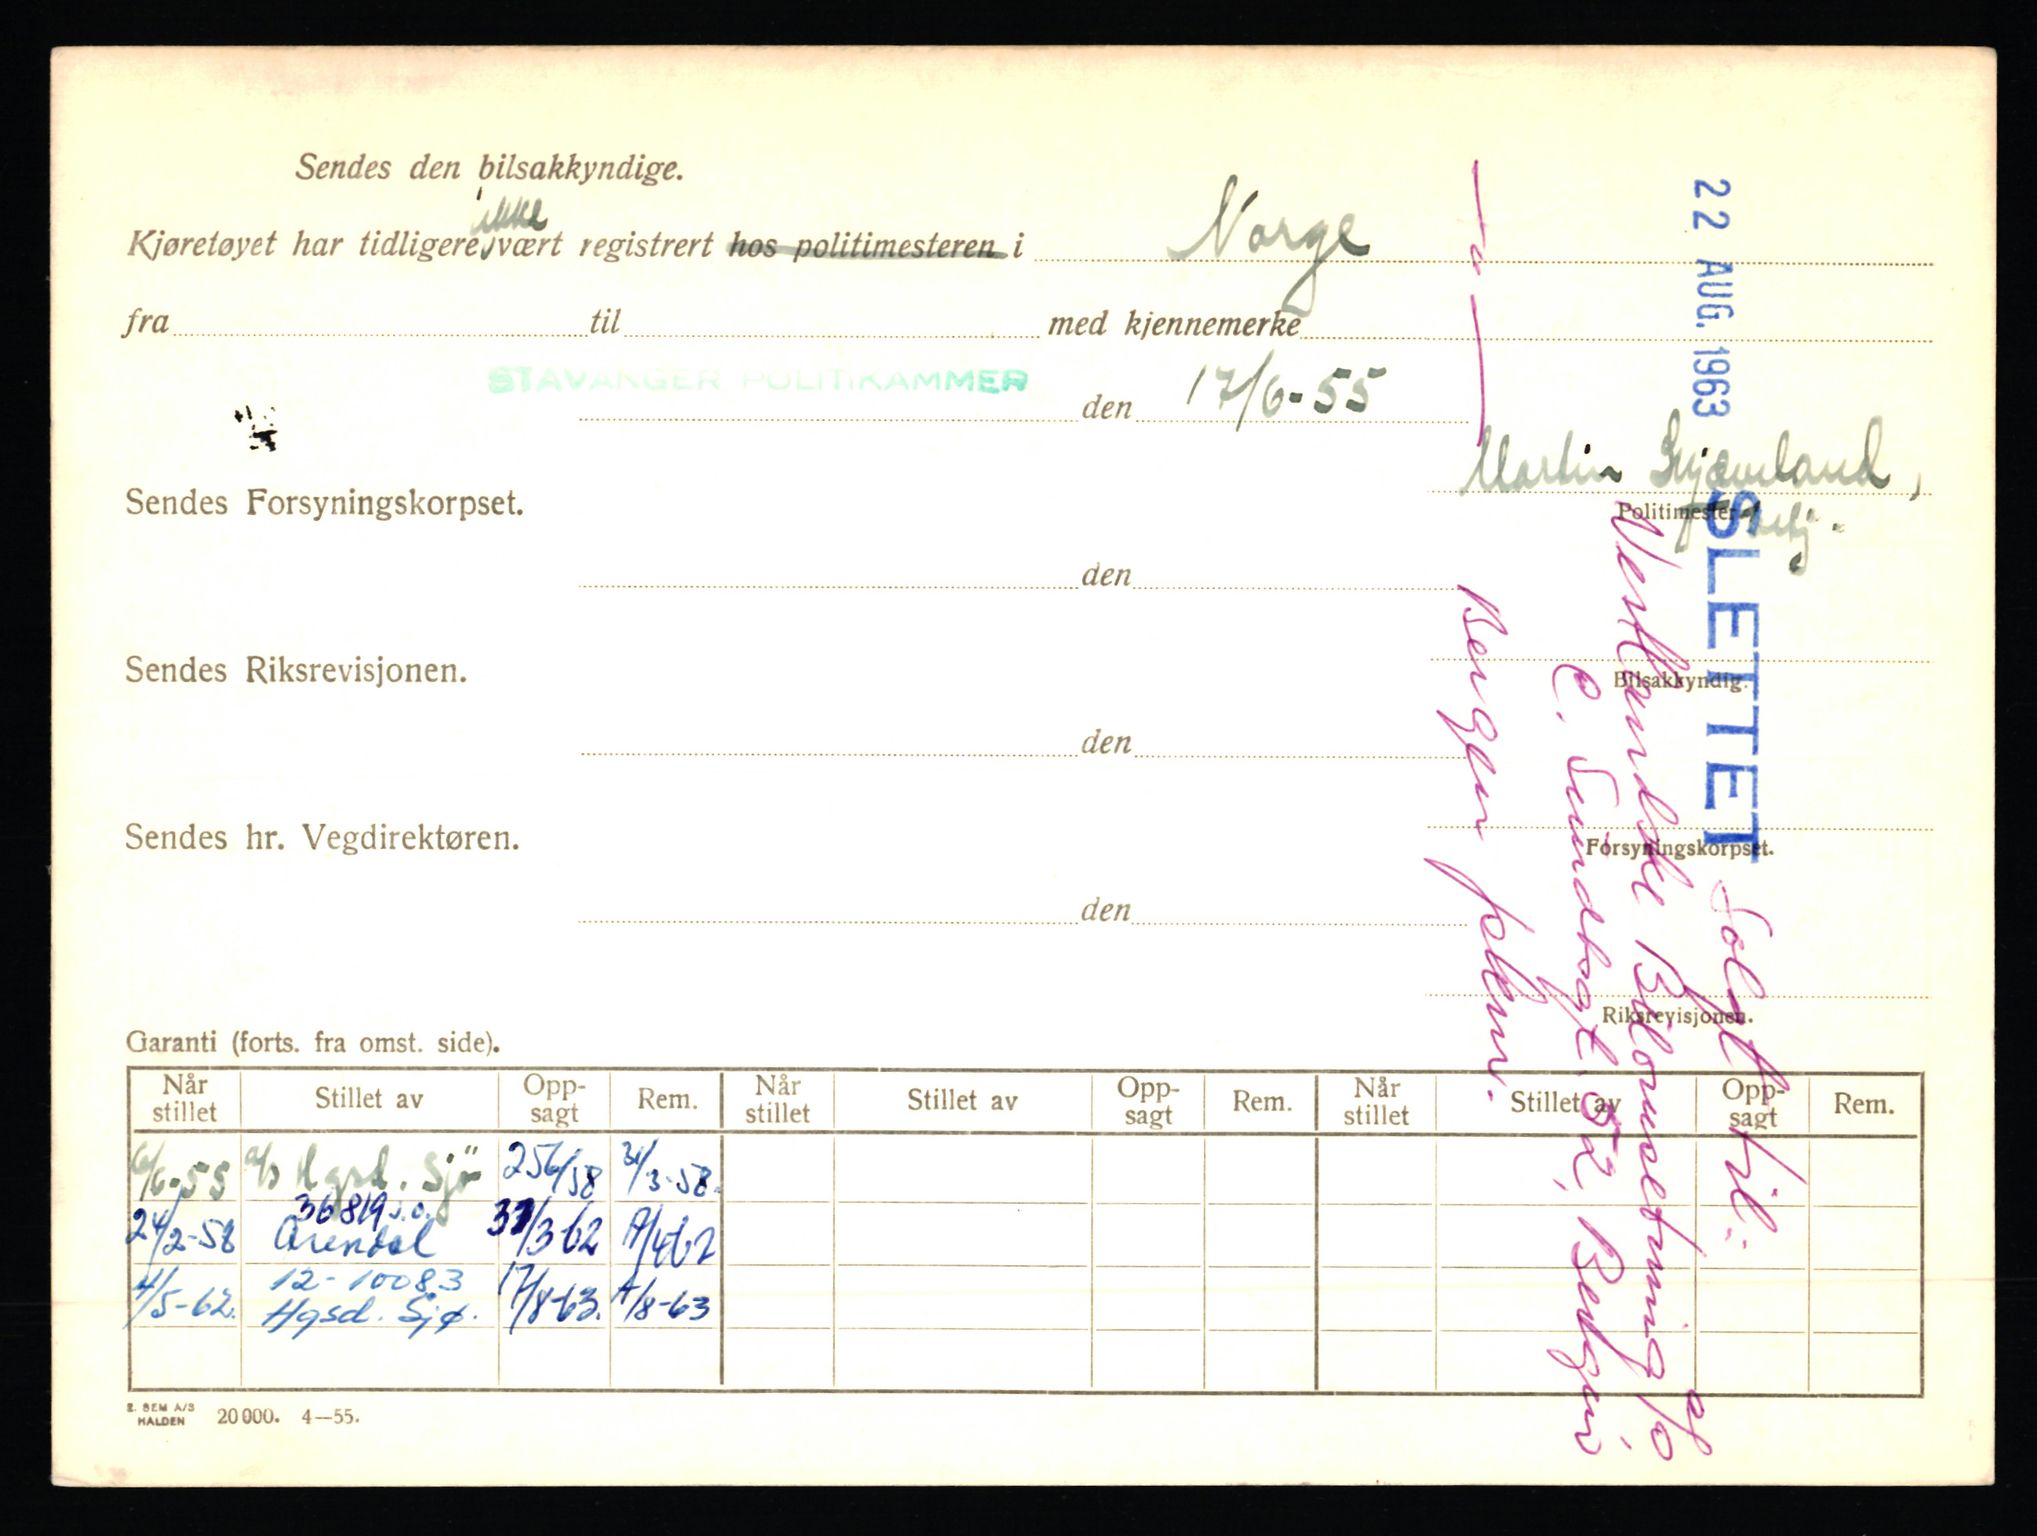 Sendes den bilsakkyndige.
ikke
Kjøretøyet har tidligere vært registrert hos politimesteren i Norge
fra til med kjennemerke
STAVANGER POLITIKAMMER
den 17/6-55
Martin
Politimester
Sendes Forsyningskorpset.
den
Bilsakkyndig.
Sendes Riksrevisjonen.
den
Forsyningskorpset.
Sendes hr. Vegdirektøren.
den
Riksrevisjonen.
22 AUG. 1963 SLETTET
Solgt til:
Vestlandske Bilomsetning
C. Sundtsgt. 52, Bergen
Bergen pkmr.
Garanti (forts. fra omst. side).
Når stillet Stillet av Opp-sagt Rem. Når stillet Stillet av Opp-sagt Rem. Når stillet Stillet av Opp-sagt Rem.
6/6-55 a/s Hgsd. Sjö 256/58 31/3-58.
36819 s.o.
24/2-58 Arendal 31/3-62 A/4-62
12-10083
4/5-62. Hgsd. Sjø. 17/8-63. A/8-63
E. SEM A/S
HALDEN 20000. 4—55.